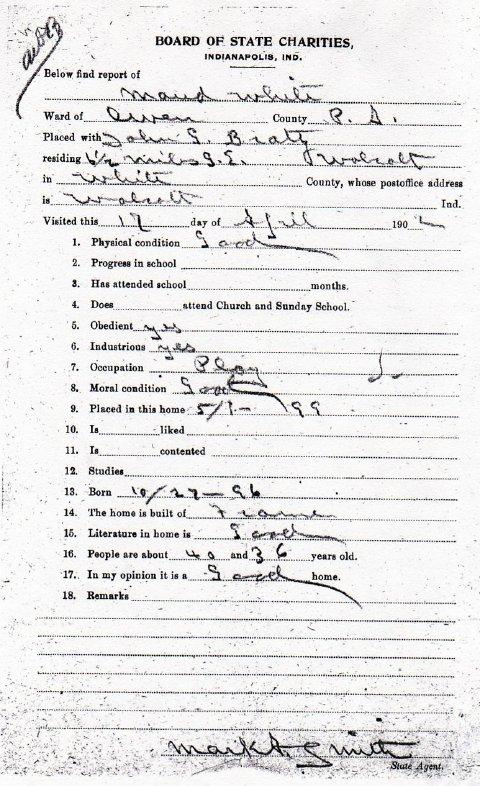 BOARD OF STATE CHARITIES,
INDIANAPOLIS, IND.
Below find report of
Maud White
Ward of Owen County P. A.
Placed with John G. Beaty
residing 1½ miles S.E. Wolcott
in White County, whose postoffice address
is Wolcott Ind.
Visited this 17 day of April 1902
1. Physical condition Good
2. Progress in school
3. Has attended school months.
4. Does attend Church and Sunday School.
5. Obedient yes
6. Industrious yes
7. Occupation Play
8. Moral condition Good
9. Placed in this home 5/1- 99
10. Is liked
11. Is contented
12. Studies
13. Born 10/27-96
14. The home is built of Frame
15. Literature in home is Good
16. People are about 40 and 36 years old.
17. In my opinion it is a Good home.
18. Remarks
Mark A. Smith
State Agent.